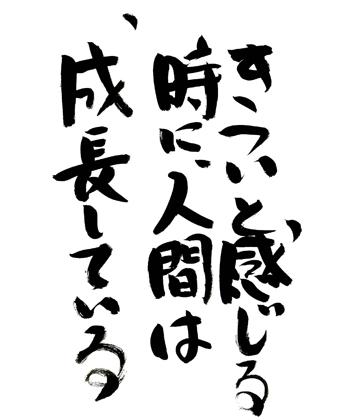 きついと感じる
時に人間は
成長している